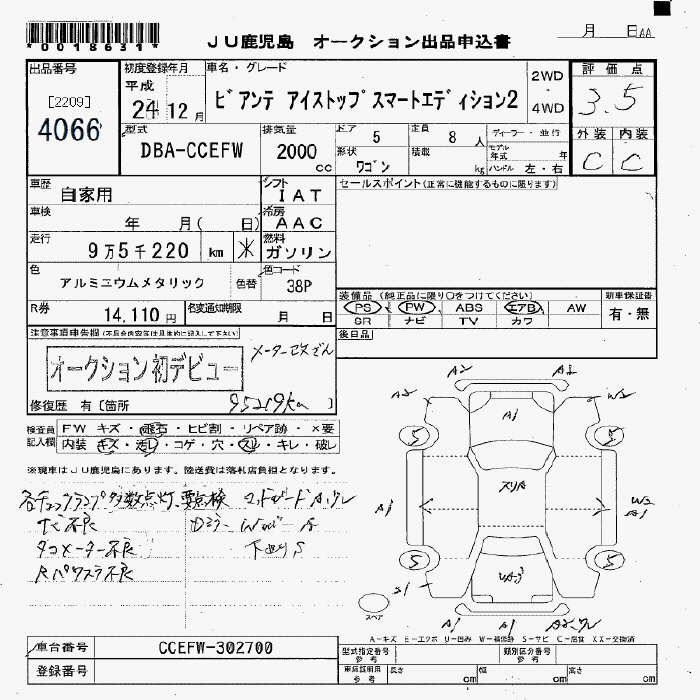 *0018631*
JU鹿児島 オークション出品申込書
月 日
出品番号
[2209]
4066
初度登録年月
平成
24 12月
車名・グレード
ビアンテ アイストップスマートエディション2
2WD
・
4WD
評価点
3.5
外装 内装
C C
型式
DBA-CCEFW
排気量
2000
cc
ドア 5
定員 8 人
形状
ワゴン
積載
kg
ディーラー・並行
モデル年式 年
ハンドル 左・右
車歴
自家用
シフト
IAT
車検
年 月( 日)
冷房
AAC
走行
9万5千220 km
燃料
ガソリン
色
アルミニウムメタリック
色替
色コード
38P
R券
14,110円
名変通知期限
月 日
セールスポイント(正常に機能するものに限ります)
装備品(純正品に限り○をつけてください)
PS ・ PW ・ ABS エアB ・ AW
SR ナビ TV カワ
新車保証書
有・無
後日品
注意事項申告欄(不具合内容等は具体的に記入して下さい)
オークション初デビュー
95219km
修復歴 有〔箇所 〕
検査員記入欄
FW キズ・飛石・ヒビ割・リペア跡・×要
内装 キズ・汚レ・コゲ・穴・スレ・キレ・破レ
※現車はJU鹿児島にあります。陸送費は落札店負担となります。
各チェックランプ多数点灯、要点検
ナビ不良
タコメーター不良
Rパワスラ不良
下廻りS
A2
A2
A2
W2
A1
5
5
スリA
A1
W2
A1
5
5
スペア
A1
A1
A=キズ E=エクボ U=凹み W=補修跡 S=サビ C=腐食 XX=交換済
車台番号
CCEFW-302700
登録番号
型式指定番号
参考
類別区分番号
参考
車庫証明用
参考
長さ cm
幅 cm
高さ cm